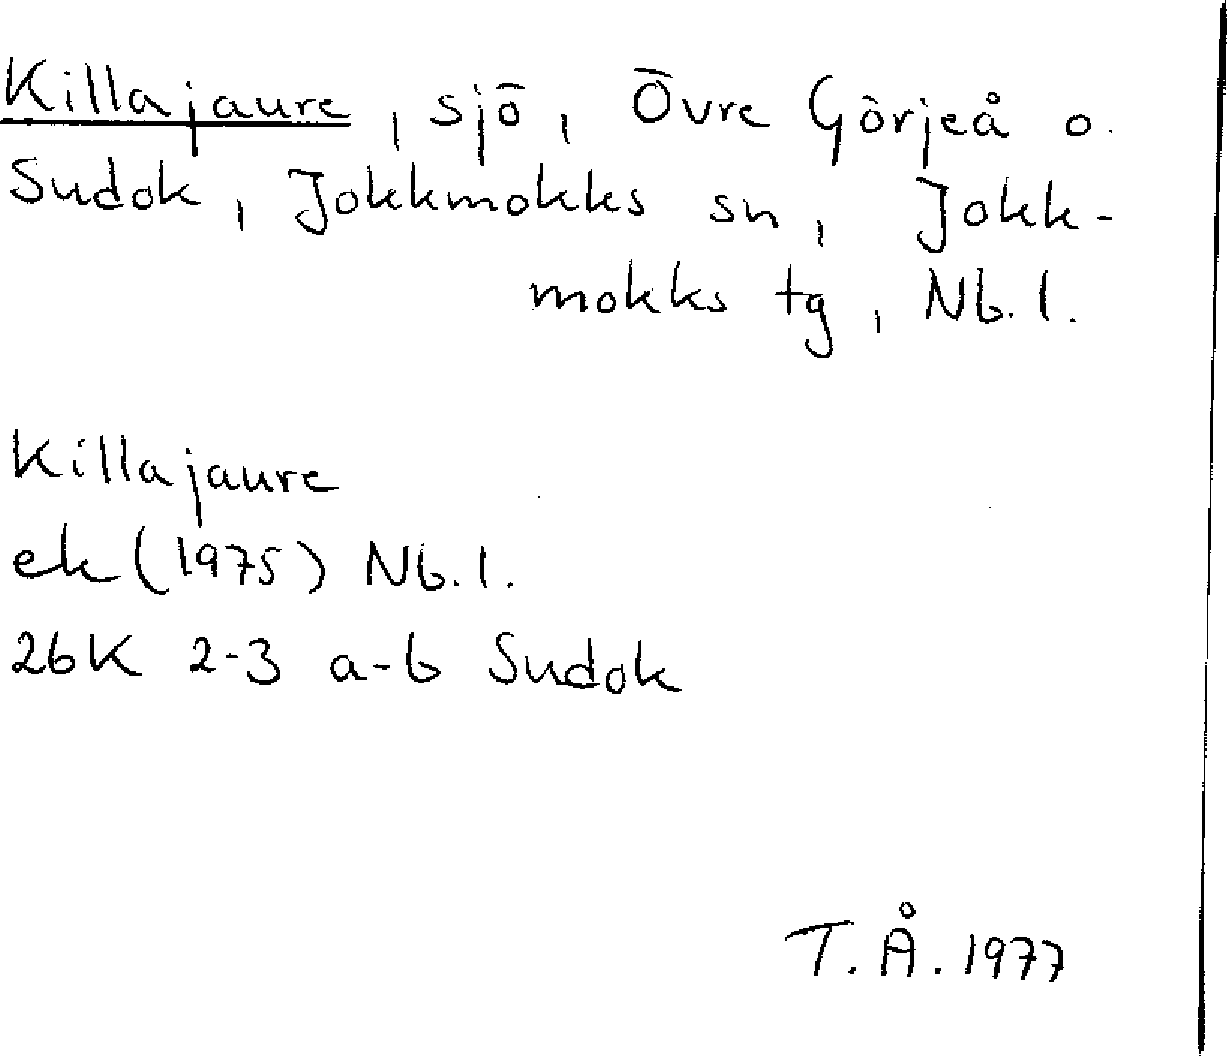 Killajaure, sjö, Övre Görjeå o.
Sudok, Jokkmokks sn, Jokk-
mokks tg, Nb. l.
Killajaure
ek (1975) Nb. l.
26K 2-3 a-b Sudok
T. Å. 1977